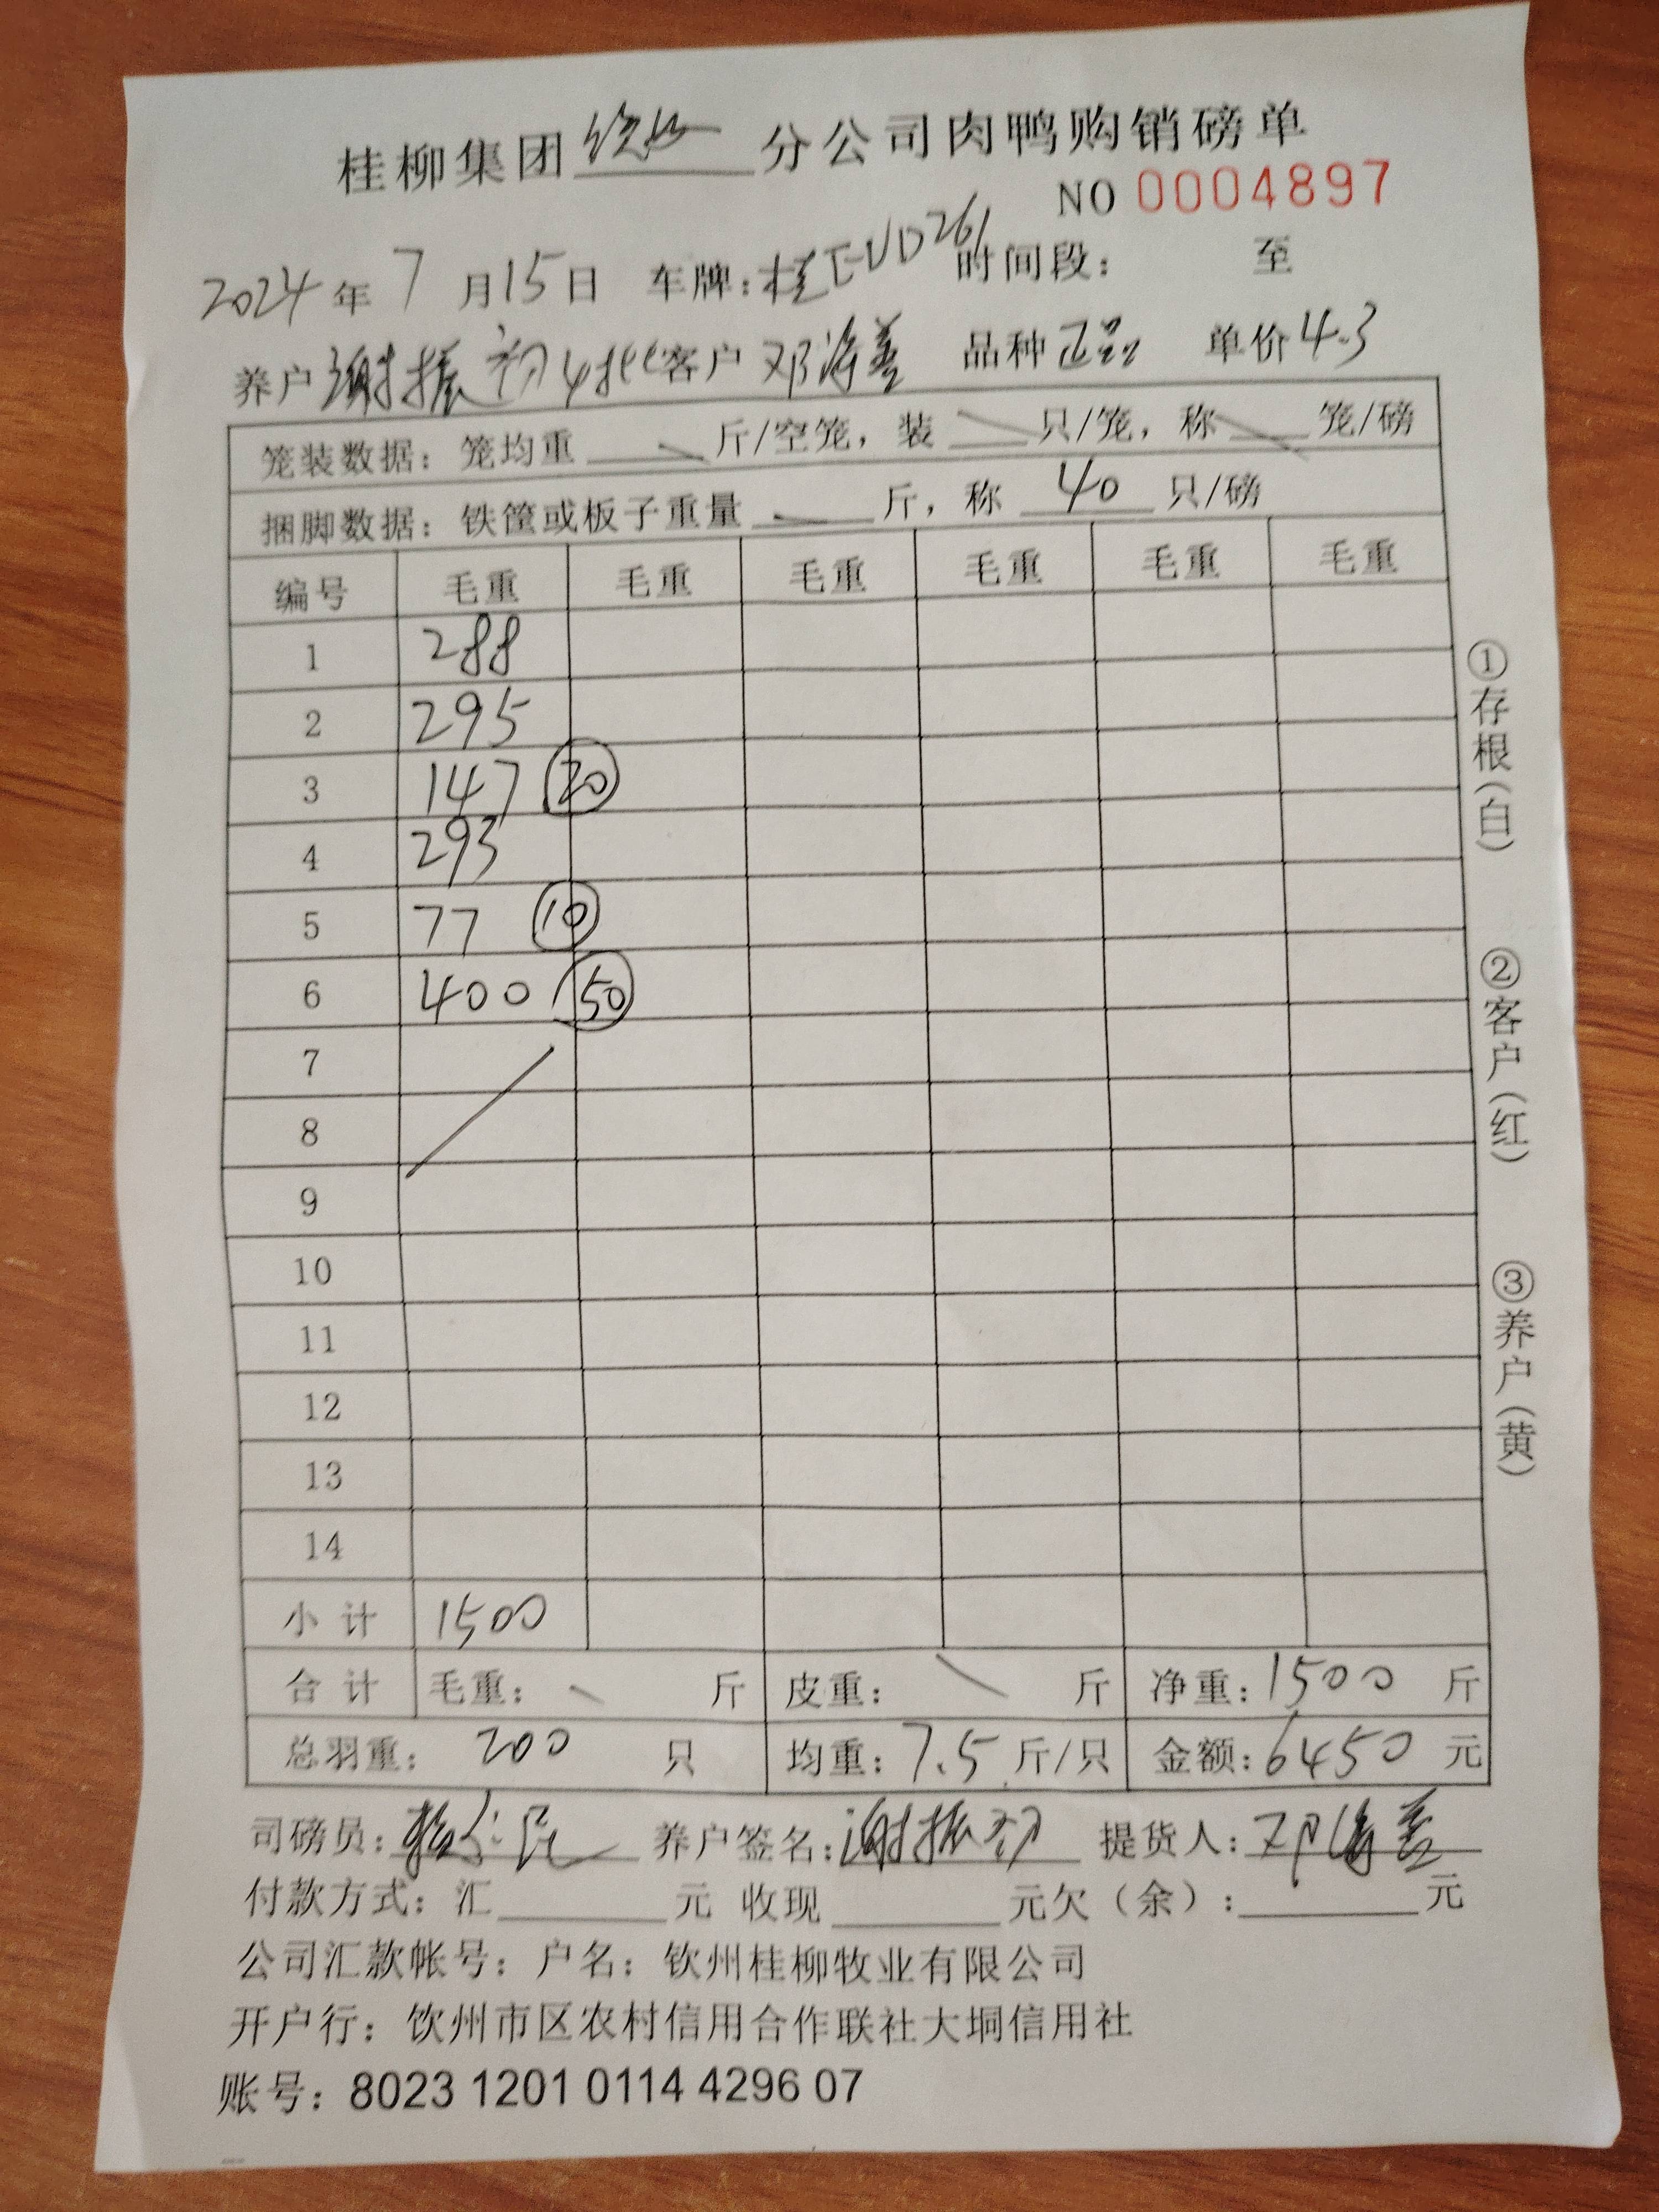 桂柳集团 钦州 分公司肉鸭购销磅单
NO 0004897
2024年 7 月15日 车牌:桂E·UD261 时间段: 至
养户 谢振初 4批 客户 邓海善 品种 正品 单价 4.3
笼装数据: 笼均重 斤/空笼, 装 只/笼, 称 笼/磅
捆脚数据: 铁筐或板子重量 斤, 称 40 只/磅
编号 毛重 毛重 毛重 毛重 毛重 毛重
1 288
2 295
3 147 20
4 293
5 77 10
6 400 50
7
8
9
10
11
12
13
14
小计 1500
合计 毛重: 斤 皮重: 斤 净重: 1500 斤
总羽重: 200 只 均重: 7.5 斤/只 金额: 6450 元
司磅员: 养户签名: 谢振初 提货人: 邓海善
付款方式: 汇 元 收现 元欠(余): 元
公司汇款帐号: 户名: 钦州桂柳牧业有限公司
开户行: 钦州市区农村信用合作联社大垌信用社
账号: 8023 1201 0114 4296 07
①存根(白)
②客户(红)
③养户(黄)